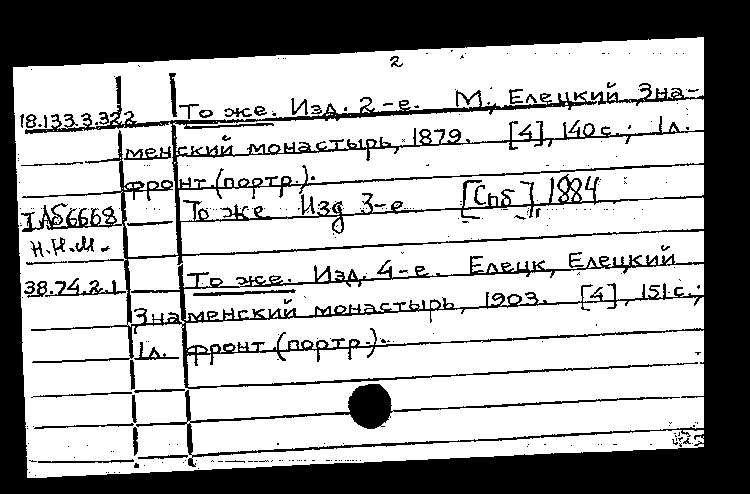 2
18.133.3.322 То же. Изд. 2-е. М., Елецкий Зна-
менский монастырь, 1879. [4], 140 с.; 1 л.
фронт. (портр.).
IAS6668 То же Изд 3-е [Спб], 1884
Н.Н.М.
38.74.2.1 То же. Изд. 4-е. Елецк, Елецкий
Знаменский монастырь, 1903. [4], 151 с.;
1 л. фронт. (портр.).